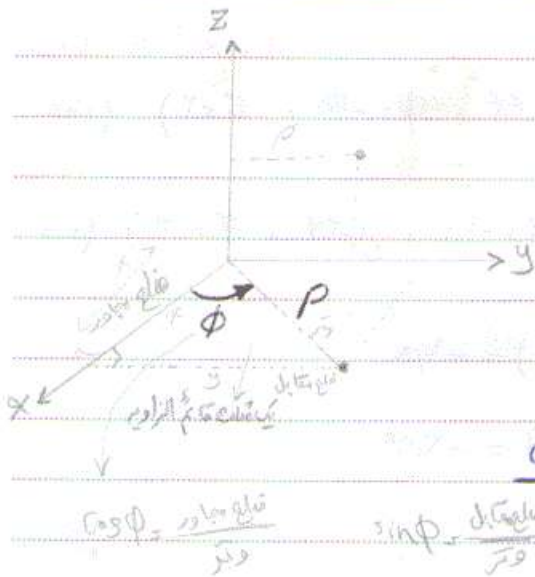 Z
ρ
y
ضلع مجاور
x
φ
ρ
وتر
y
ضلع مقابل
x
یک مثلث قائم الزاویه
cos φ = ضلع مجاور / وتر
sin φ = ضلع مقابل / وتر